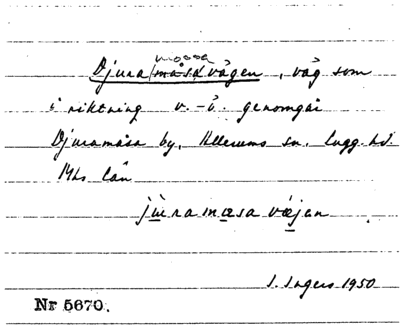 mossa
Djura/måsa/vägen, väg som
i riktning v.-ö. genomgår
Djuramåsa by, Hllerums sn. Lugg. hd.
Mhs län
jùramosa väjen
I. Ingers 1950
Nr 5670.